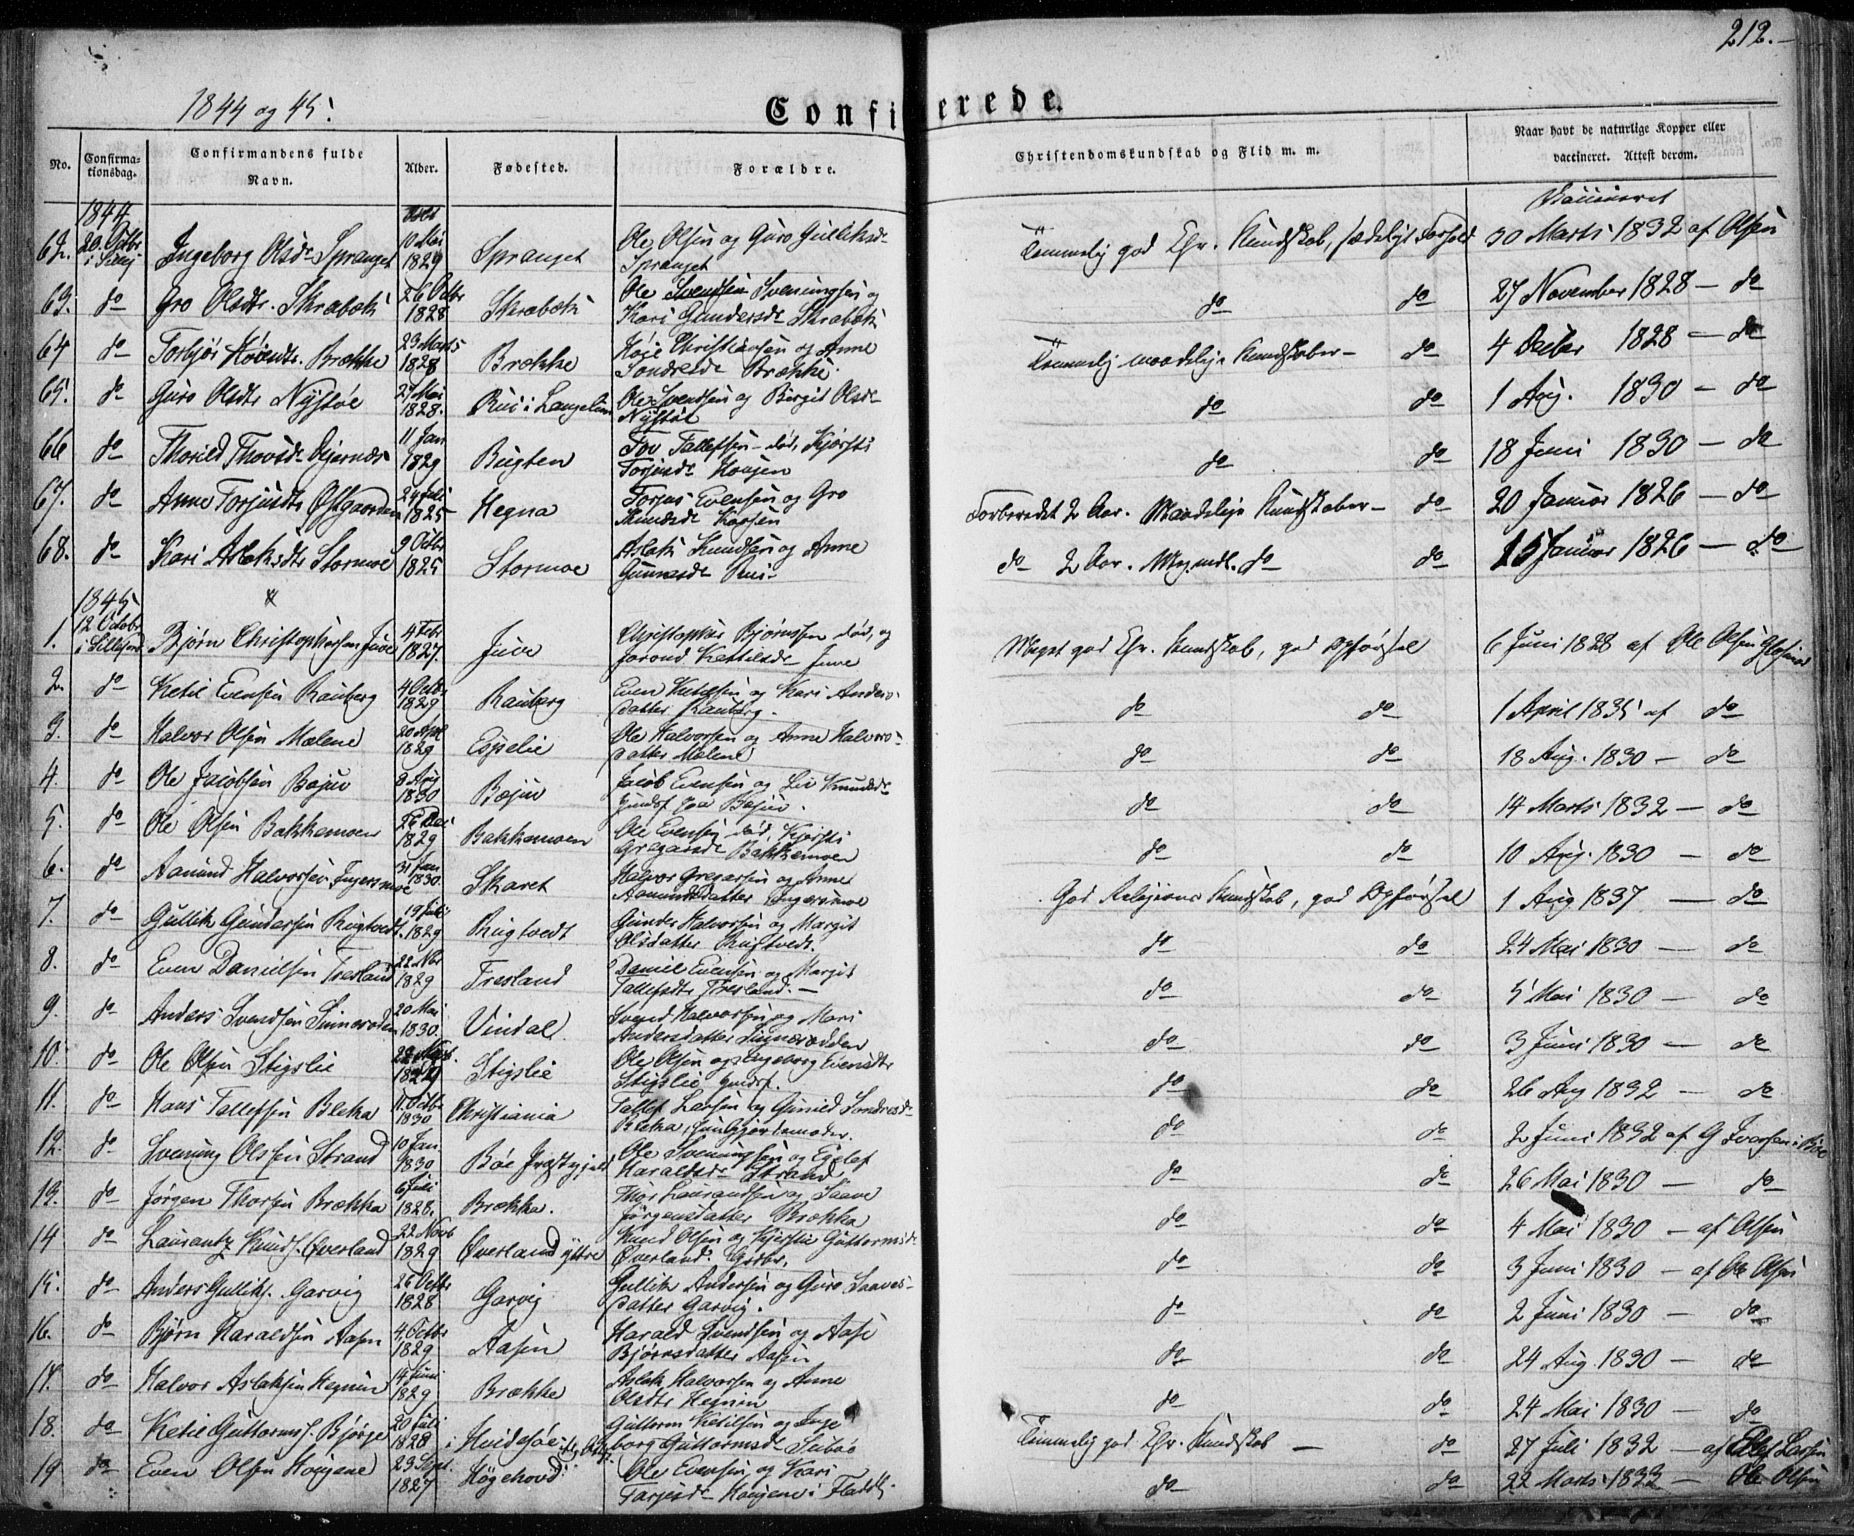 212.
1844 og 45.
Confirmerede.
No. Confirmationsdag. Confirmandens fulde Navn. Alder. Fødested. Forældre. Christendomskundskab og Flid m. m. Naar havt de naturlige Kopper eller vaccineret. Attest derom.
1844 Vaccineret
62. 20. Octbr i Sillej Ingeborg Olsdr Spranget 10 Mai 1829 Spranget Ole Olsen og Guro Gulliksdr Spranget Temmelig god Chr. Kundskab, sædeligt Forhold 30 Marts 1832 af Olsen
63. do Gro Olsdtr. Skrabæk 26 Octbr 1828 Skrabæk Ole Sveningsen og Kari Gundersdr Skrabæk do do 27 November 1828 - do
64 do Torbjør Brække 23 Marts 1828 Brække Christiansen og Anne Sondresdr Brække. Temmelig maadelige Kundskaber - do 4 Decbr 1828 - do
65. do Guro Olsdtr Nystøe 27 Mai 1828. Rui i Langelim Ole Svendsen og Birgit Olsdr Nystøe do do 1 Aug. 1830 - do
66 do Thorild Thovsdr 11 Jan 1829 Bugten Tov Tallefsen død, Kjersti Torjusdr Haugen do do 18 Juni 1830 - do
67. do Anne Torjusdtr Østgaarden 24 Juli 1825 Hegna Torjus Evensen og Gro Knudsdr Forberedt 2 Aar. Maadelige Kundskaber - do 20 Januar 1826 - do
68. do Kari Aslaksdtr Stormoe 9 Octbr 1825 Stormoe Aslak Knudsen og Anne Gunnersdr Rui do 2 Aar. do do 15 Januar 1826 - do
1845
1. 12 Octobr i Sillejord Bjørn Christophersen Juve 4 Febr 1827. Juve Christopher Bjørnsen død, og Jorond Kettilsdr Juve Meget god Chr. Kundskab, god Opførsel 6 Juni 1828 af Ole Olsen
2. do Ketil Evensen Rauberg 4 Octbr 1829 Rauberg Even Ketilsen og Kari Andersdatter Rauberg. do do 1 April 1835 af do
3. do Halvor Olsen Mælene 20 Apl 1829 Espelie Ole Halvorsen og Anne Halvorsdatter Mælene do do 18 Aug. 1830 - do
4. do Ole Jacobsen Bøjuv 8 Aug 1830 Bøjuv Jacob Evensen og Liv Knudsdr Bøjuv. do do 14 Marts 1832 - do
5. do Ole Olsen Bakkemoen 26 Dec 1829 Bakkemoen Ole Evensen død, Kjersti Gregarsdr Bakkemoen do do 10 Aug. 1830 - do
6. do Aanund Halvorsen Ingersmoe 31 Jan 1830. Skaret Halvor Gregarsen og Anne Aanundsdatter Ingersmoe God Religions Kundskab, god Opførsel 1 Aug 1837 - do
7. do Gullik Gundersen Rugtvedt. 19 Juli 1829 Rugtvedt Gunder Halvorsen og Margit Olsdatter Rugtvedt. do do 24 Mai 1830 - do
8. do Even Danielsen Tresland 22 Nbr 1829 Tresland Daniel Evensen og Margit Tallefsdtr Tresland. do do 5 Mai 1830 - do
9. do Anders Svendsen 20 Mai 1830. Vindal Svend Halvorsen og Mari Andersdatter do do 3 Juni 1830 - do
10. do Ole Olsen Stigslie 1829 Stigslie Ole Olsen og Ingeborg Evensdtr Stigslie do do 26 Aug 1832 - do
11. do Hans Tallefsen Bleka 11. Octbr 1830 Christiania Tallef Larsen og Gunild Sondresdr Bleka, do do 2 Juni 1832 af G Iversen i Bøe
12. do Svening Olsen Strand 10 Jan 1830 Bøe Præstegjeld Ole Sveningsen og Egelef Haraldsdr Strand do do 26 Mai 1830 - do
13. do Jørgen Thorsen Brækka 6 Juli 1828. Brækka. Thor Laurantsen og Saave Jørgensdatter Brækka do do 4 Mai 1830 - af Olsen
14 do Laurantz Knuds. Øverland 22 Novb 1829 Øverland yttre Knud Olsen og Kjerstie Guttormsdr Øverland. do do 3 Juni 1830 - af Ole Olsen
15. do Anders Gulliks. Garvig 26 Octbr 1828 Garvig Gullik Andersen og Guro Saavesdatter Garvig. do do 2 Juni 1830 - do
16. do Bjørn Haraldsen Aasen 4. Octbr 1829 Aasen Harald Svendsen og Aase Bjørnsdatter Aasen do do 24 Aug 1830 - do
17. do Halvor Aslaksen Hegnin 14 Juni 1829 Brække Aslak Halvorsen og Anne Olsdtr Hegnin do do 24 Mai 1830 - do
18. do Ketil Guttorms. Bjørge 20 Juli 1828 i Hvidesøe Guttorm Ketilsen og Ingeborg Guttormsdr Temmelig god Chr. Kundskab - do 27 Juli 1832 - af Larsen
19 do Even Olsen Haugene 23 Sept. 1827 Høgehovd Ole Evensen og Kari Tarjesdr Haugene i do do 22 Marts 1833 - Ole Olsen